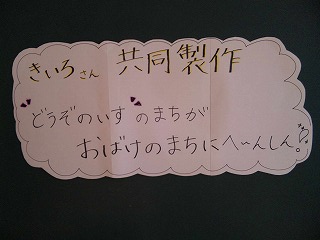 きいろさん 共同製作
どうぞのいす のまちが
おばけのまちにへ〜んしん。